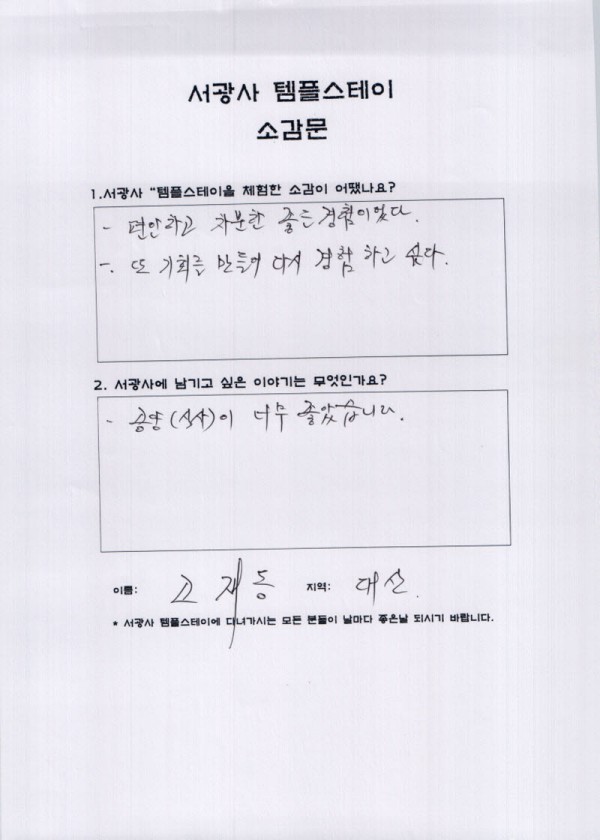 서광사 템플스테이
소감문
1.서광사 "템플스테이을 체험한 소감이 어땠나요?
- 편안하고 차분한 좋은 경험이었다.
-. 또 기회를 만들어 다시 경험 하고 싶다.
2. 서광사에 남기고 싶은 이야기는 무엇인가요?
- 공양(식사)이 너무 좋았습니다.
이름: 고재동 지역: 대산.
* 서광사 템플스테이에 다녀가시는 모든 분들이 날마다 좋은날 되시기 바랍니다.